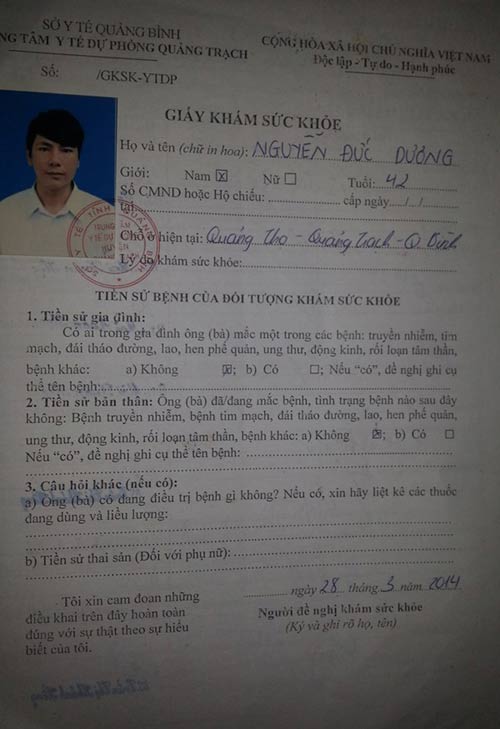 SỞ Y TẾ QUẢNG BÌNH
NG TÂM Y TẾ DỰ PHÒNG QUẢNG TRẠCH
Số: /GKSK-YTDP
CỘNG HÒA XÃ HỘI CHỦ NGHĨA VIỆT NAM
Độc lập - Tự do - Hạnh phúc
GIẤY KHÁM SỨC KHỎE
Họ và tên (chữ in hoa): NGUYỄN ĐỨC DƯƠNG
Giới: Nam ☒ Nữ ☐ Tuổi: 42
Số CMND hoặc Hộ chiếu: cấp ngày / /
tại
Chỗ ở hiện tại: Quảng Thọ - Quảng Trạch - Q Bình
Lý do khám sức khỏe:
TIỀN SỬ BỆNH CỦA ĐỐI TƯỢNG KHÁM SỨC KHỎE
1. Tiền sử gia đình:
Có ai trong gia đình ông (bà) mắc một trong các bệnh: truyền nhiễm, tim
mạch, đái tháo đường, lao, hen phế quản, ung thư, động kinh, rối loạn tâm thần,
bệnh khác: a) Không ☒; b) Có ☐; Nếu “có”, đề nghị ghi cụ
thể tên bệnh:
2. Tiền sử bản thân: Ông (bà) đã/đang mắc bệnh, tình trạng bệnh nào sau đây
không: Bệnh truyền nhiễm, bệnh tim mạch, đái tháo đường, lao, hen phế quản,
ung thư, động kinh, rối loạn tâm thần, bệnh khác: a) Không ☒; b) Có ☐
Nếu “có”, đề nghị ghi cụ thể tên bệnh:
3. Câu hỏi khác (nếu có):
a) Ông (bà) có đang điều trị bệnh gì không? Nếu có, xin hãy liệt kê các thuốc
đang dùng và liều lượng:
b) Tiền sử thai sản (Đối với phụ nữ):
Tôi xin cam đoan những
điều khai trên đây hoàn toàn
đúng với sự thật theo sự hiểu
biết của tôi.
ngày 28 tháng 3 năm 2014
Người đề nghị khám sức khỏe
(Ký và ghi rõ họ, tên)